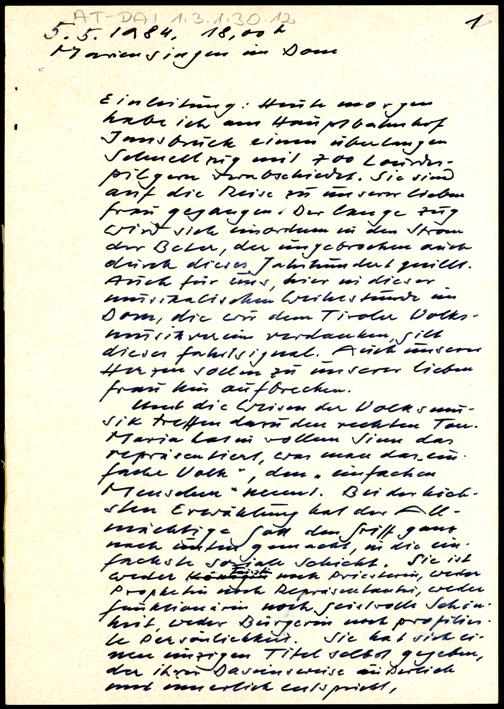 AT-DAI 1.3.1.30.12
1
5.5.1984, 18,00 h
Mariensingen im Dom
Einleitung: Heute morgen
habe ich am Hauptbahnhof
Innsbruck einen überlangen
Schnellzug mit 700 Lourdes-
pilgern verabschiedet. Sie sind
auf die Reise zu unserer lieben
Frau gegangen. Der lange Zug
wird sich einordnen in den Strom
der Beter, der ungebrochen auch
durch dieses Jahrhundert quillt.
Auch für uns, hier in dieser
musikalischen Weihestunde im
Dom, die wir dem Tiroler Volks-
musikverein verdanken, gilt
dieses Fahrtsignal. Auch unsere
Herzen sollen zu unserer lieben
Frau hin aufbrechen.
Und die Weisen der Volksmu-
sik treffen dazu den rechten Ton.
Maria hat im vollen Sinn das
repräsentiert, was man das "ein-
fache Volk", den "einfachen
Menschen" nennt. Bei der höch-
sten Erwählung hat der All-
mächtige Gott den Griff ganz
nach unten gemacht, in die ein-
fachste soziale Schicht. Sie ist
weder Fürstin noch Priesterin, weder
Prophetin noch Repräsentantin, weder
Funktionärin noch geistvolle Schön-
heit, weder Bürgerin noch profilier-
te Persönlichkeit. Sie hat sich ei-
nen einzigen Titel selbst gegeben,
der ihrer Daseinsweise äußerlich
und innerlich entspricht,